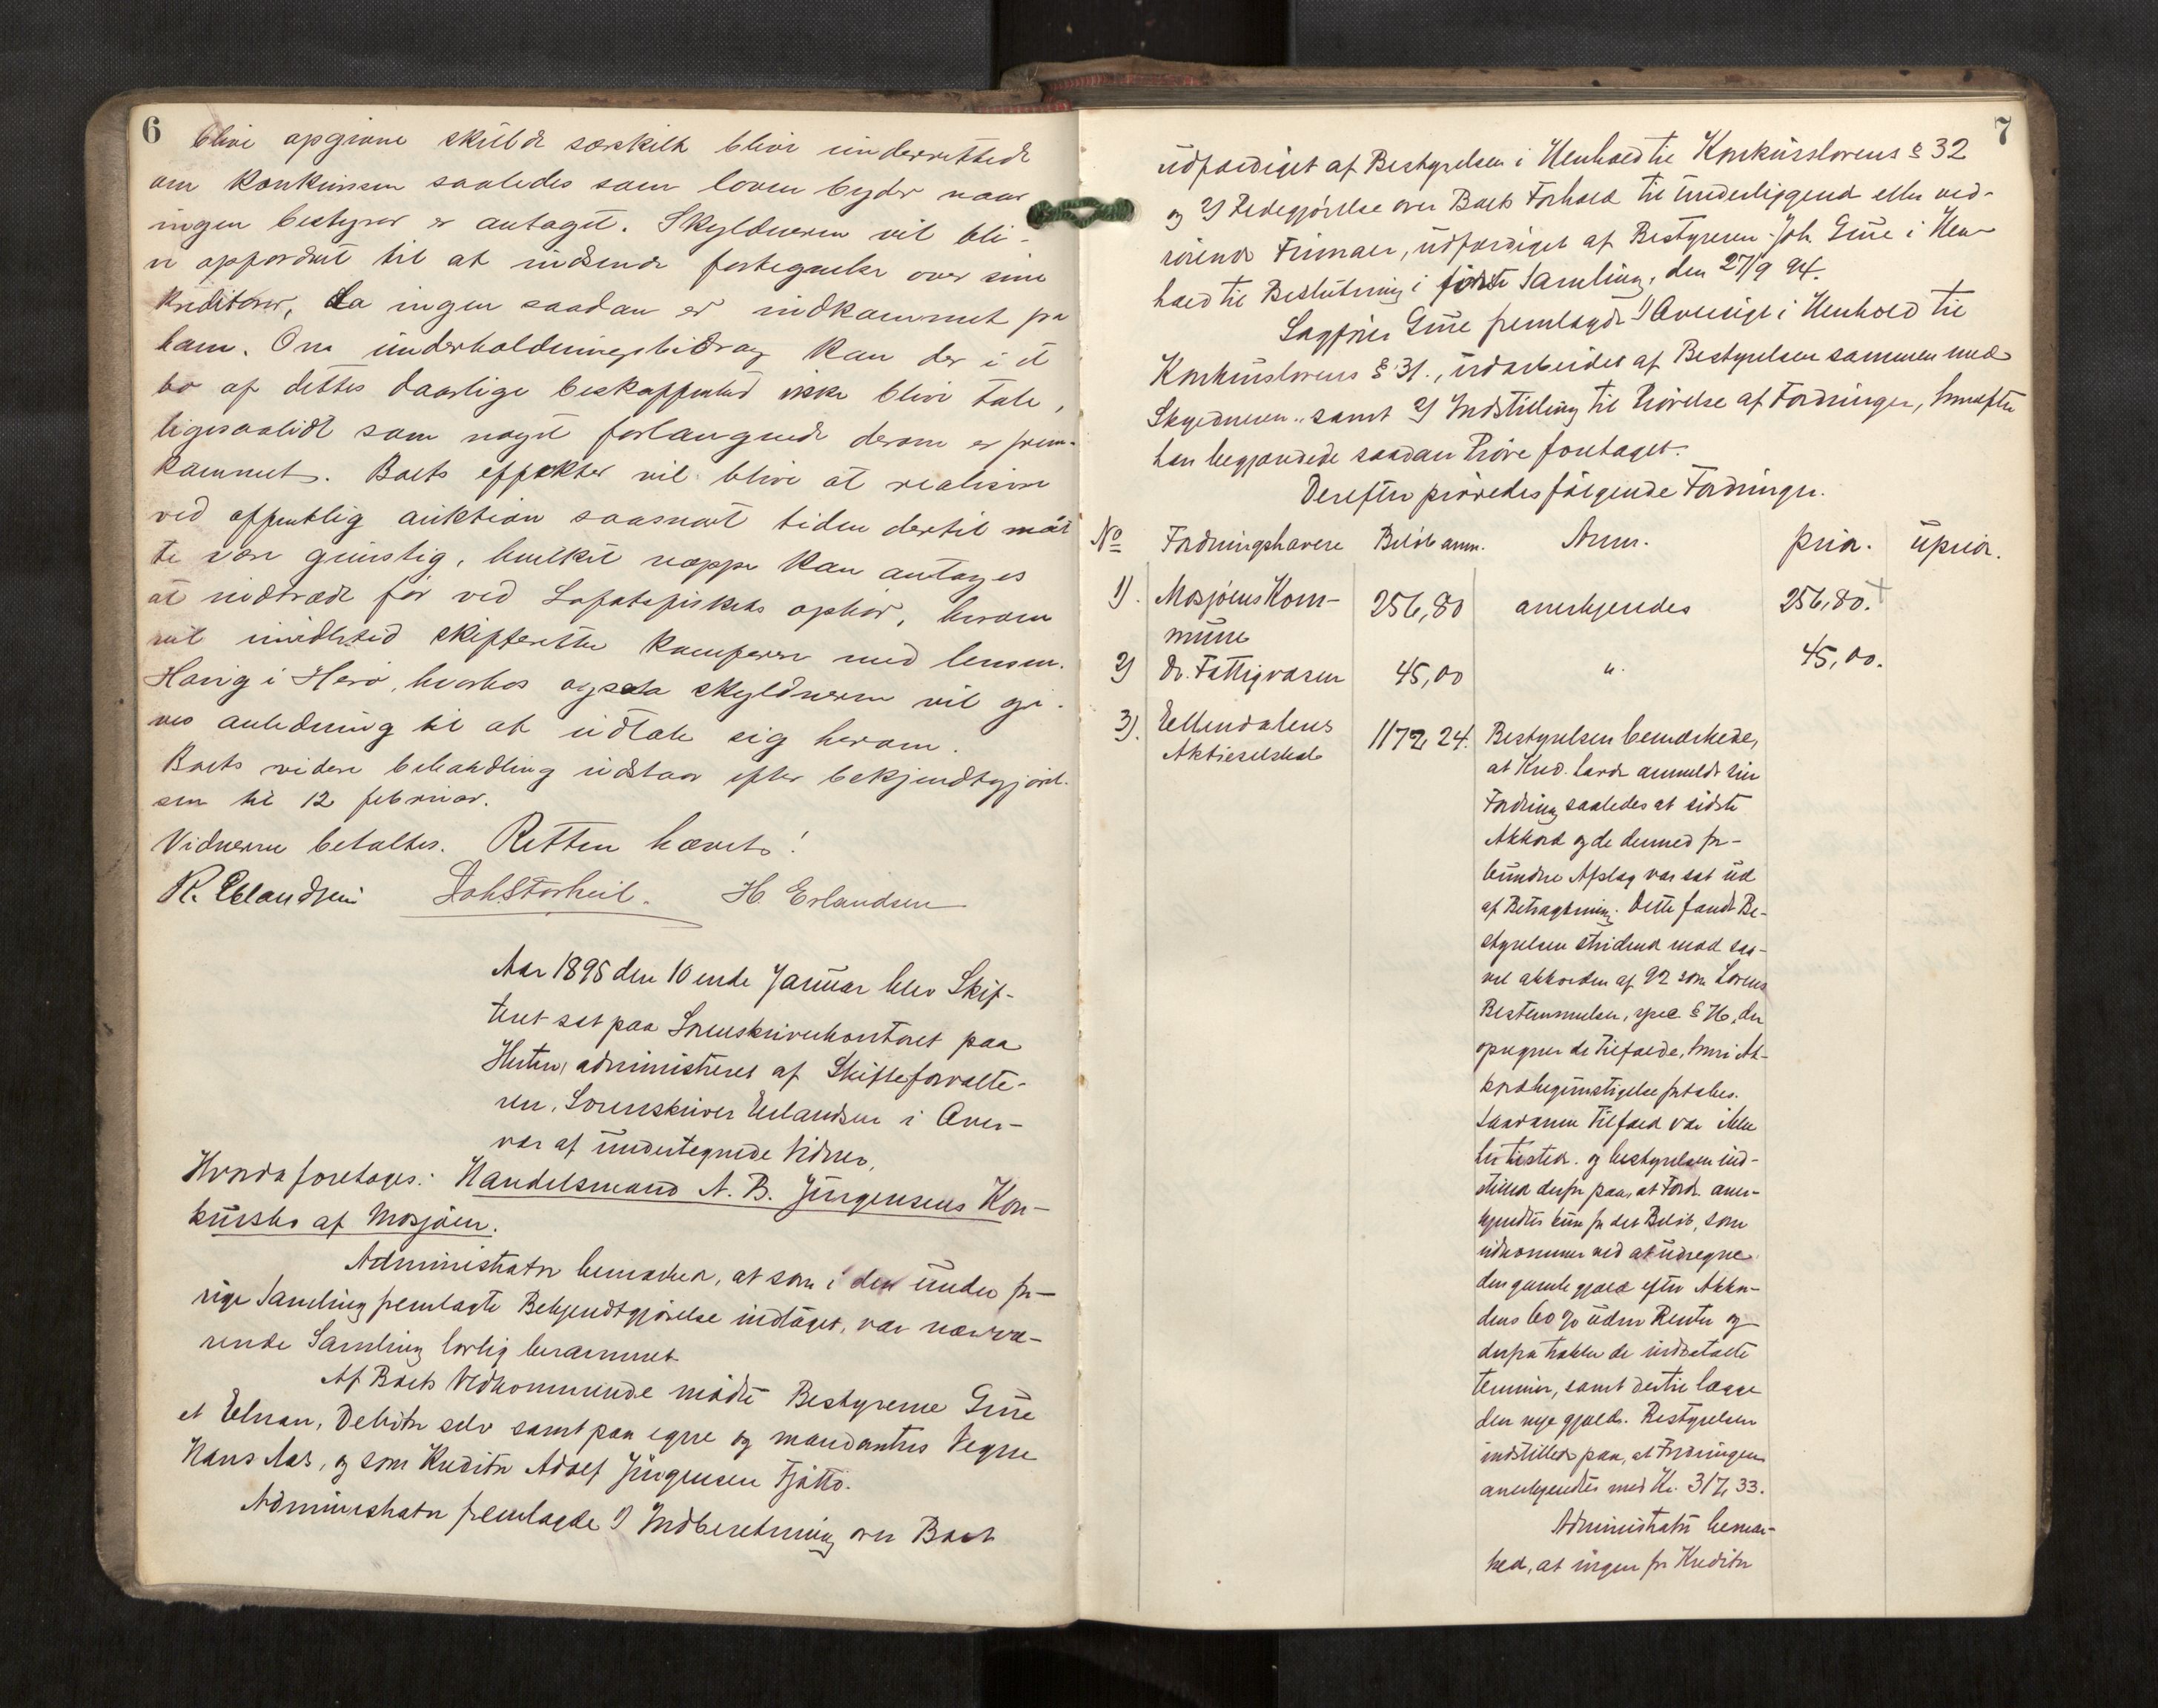 6
blive opgivne skulde særskilt blive underrettede
om konkursen saaledes som loven byder naar
ingen bestyrer er antaget. Skyldneren vil bli-
ve opfordret til at indsende fortegnelse over sine
kreditorer, da ingen saadan er indkommet fra
ham. Om underholdningsbidrag kan der i et
bo af dettes daarlige beskaffenhed ikke blive tale,
ligesaalidt som noget forlangende derom er frem-
kommet. Boets effekter vil blive at realisere
ved offentlig auktion saasnart tiden dertil maat
te være gunstig, hvilket neppe kan antages
at indtræde før ved Lofotfiskets ophør, herom
vil imidlertid skifteretten konferere med lensm.
Havig i Herø, hvorhos ogsaa skyldneren vil gi-
ves anledning til at udtale sig herom.
Boets videre behandling udstaar efter bekjendtgjørel-
sen til 12 februar.
Vidnerne betaltes. Retten hævet!
R. Erlandsen Joh Storheil. H. Erlandsen
Aar 1895 den 10 ende Januar blev Skif-
teret sat paa Sorenskriverkontoret paa
administreret af Skifteforvalte-
ren, Sorenskriver Erlandsen i Over-
vær af undertegnede Vidner,
Hvorda foretoges: Handelsmand A. B. Jürgensens Kon-
kursbo af Mosjøen.
Administrator bemærked, at som i den under for-
rige Samling fremlagte Bekjendtgjørelse indtaget, var nærvæ-
rende Samling lovlig berammet
Af Boets Vedkommende mødte Bestyrerne Grüe
et Elnan, Debitor selv samt paa egne og mandantens Vegne
Hans Aas, og som Kreditor Adolf Jürgensen Tjøtto.
Administrator fremlagde 1) Indberetning over Boet
7
udfærdiget af Bestyrelsen i Henhold til Konkurslovens § 32
og 2) Redegjørelse over Boets Forhold til underliggende eller ved-
rørende Firmaer, udfærdiget af Bestyreren Joh. Grüe i Hen-
hold til Beslutning i første Samling, den 27/9 94.
Sagfører Grüe fremlagde 1) Oversigt i Henhold til
Konkurslovens § 31., udarbeidet af Bestyrelsen sammen med
Skyldneren samt 2) Indstilling til Prøvelse af Fordringer, hvorefter
han begjærede saadan Prøve foretaget.
Derefter prøvedes følgende Fordringer.
No Fordringshavere Beløb anm. Anm. prior. uprior.
1). Mosjøens Kom- 256,80 anerkjendes 256,80.
mune
2) Do. Fattigvæsen 45,00 " 45,00.
3). Eellendalens 1172,24. Bestyrelsen bemærkede,
Aktieselskab
at Kred. havde anmeldt sin
Fordring saaledes at sidste
Akkord og de dermed for-
bundne Afslag var sat ud
af Betragtning. Dette fandt Be-
styrelsen stridende mod saa-
vel akkorden af 92 som Lovens
Bestemmelser, spec § 76, der
opregner de Tilfælde, hvori Ak-
kordbegunstigelse fortabes.
Saadanne Tilfæld var ikke
her tilsted. og bestyrelsen ind-
stilled derfor paa, at Fordr. aner-
kjendtes kun for det Beløb, som
udkommer ved at udregne
den gamle gjæld efter Akkor-
dens 60 % uden Renter og
derfra trække de indbetalte
terminer, samt dertil lægge
den nye gjæld. Bestyrelsen
indstilled paa, at Fordringen
anerkjendtes med Kr. 317,33.
Administrator bemær-
ked, at ingen for Kreditor